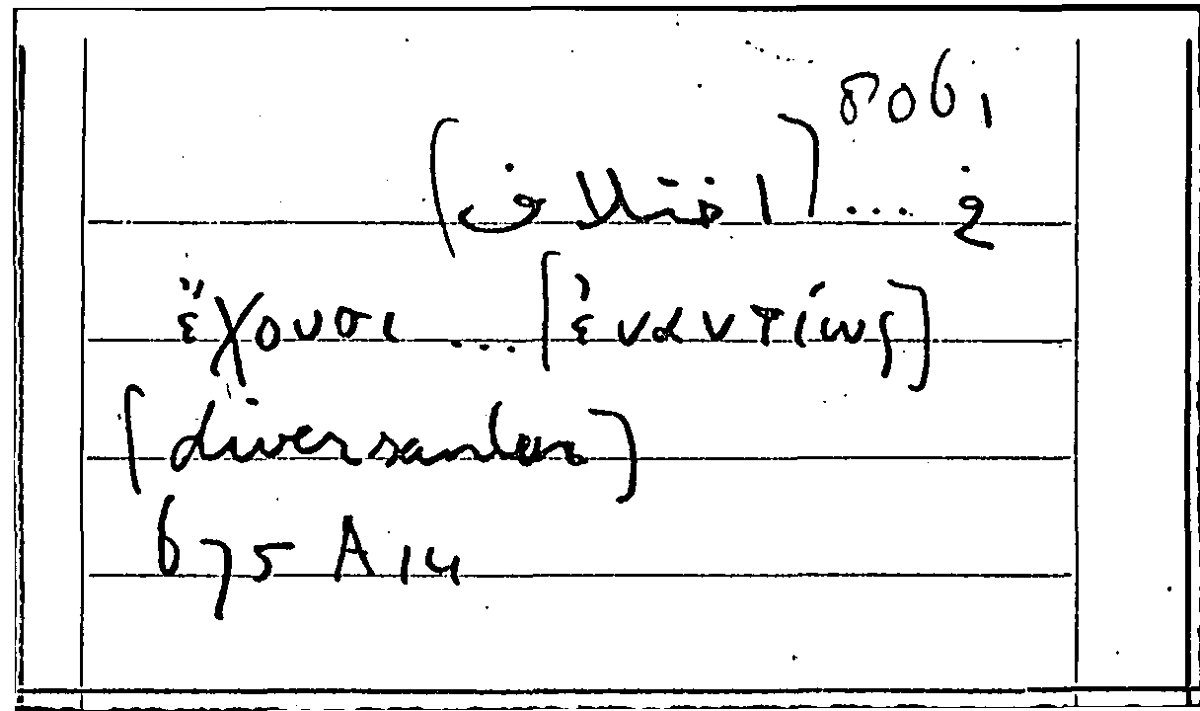 8061
في ... [اختلاف]
ἔχουσι ... [ἐναντίως]
675 A14